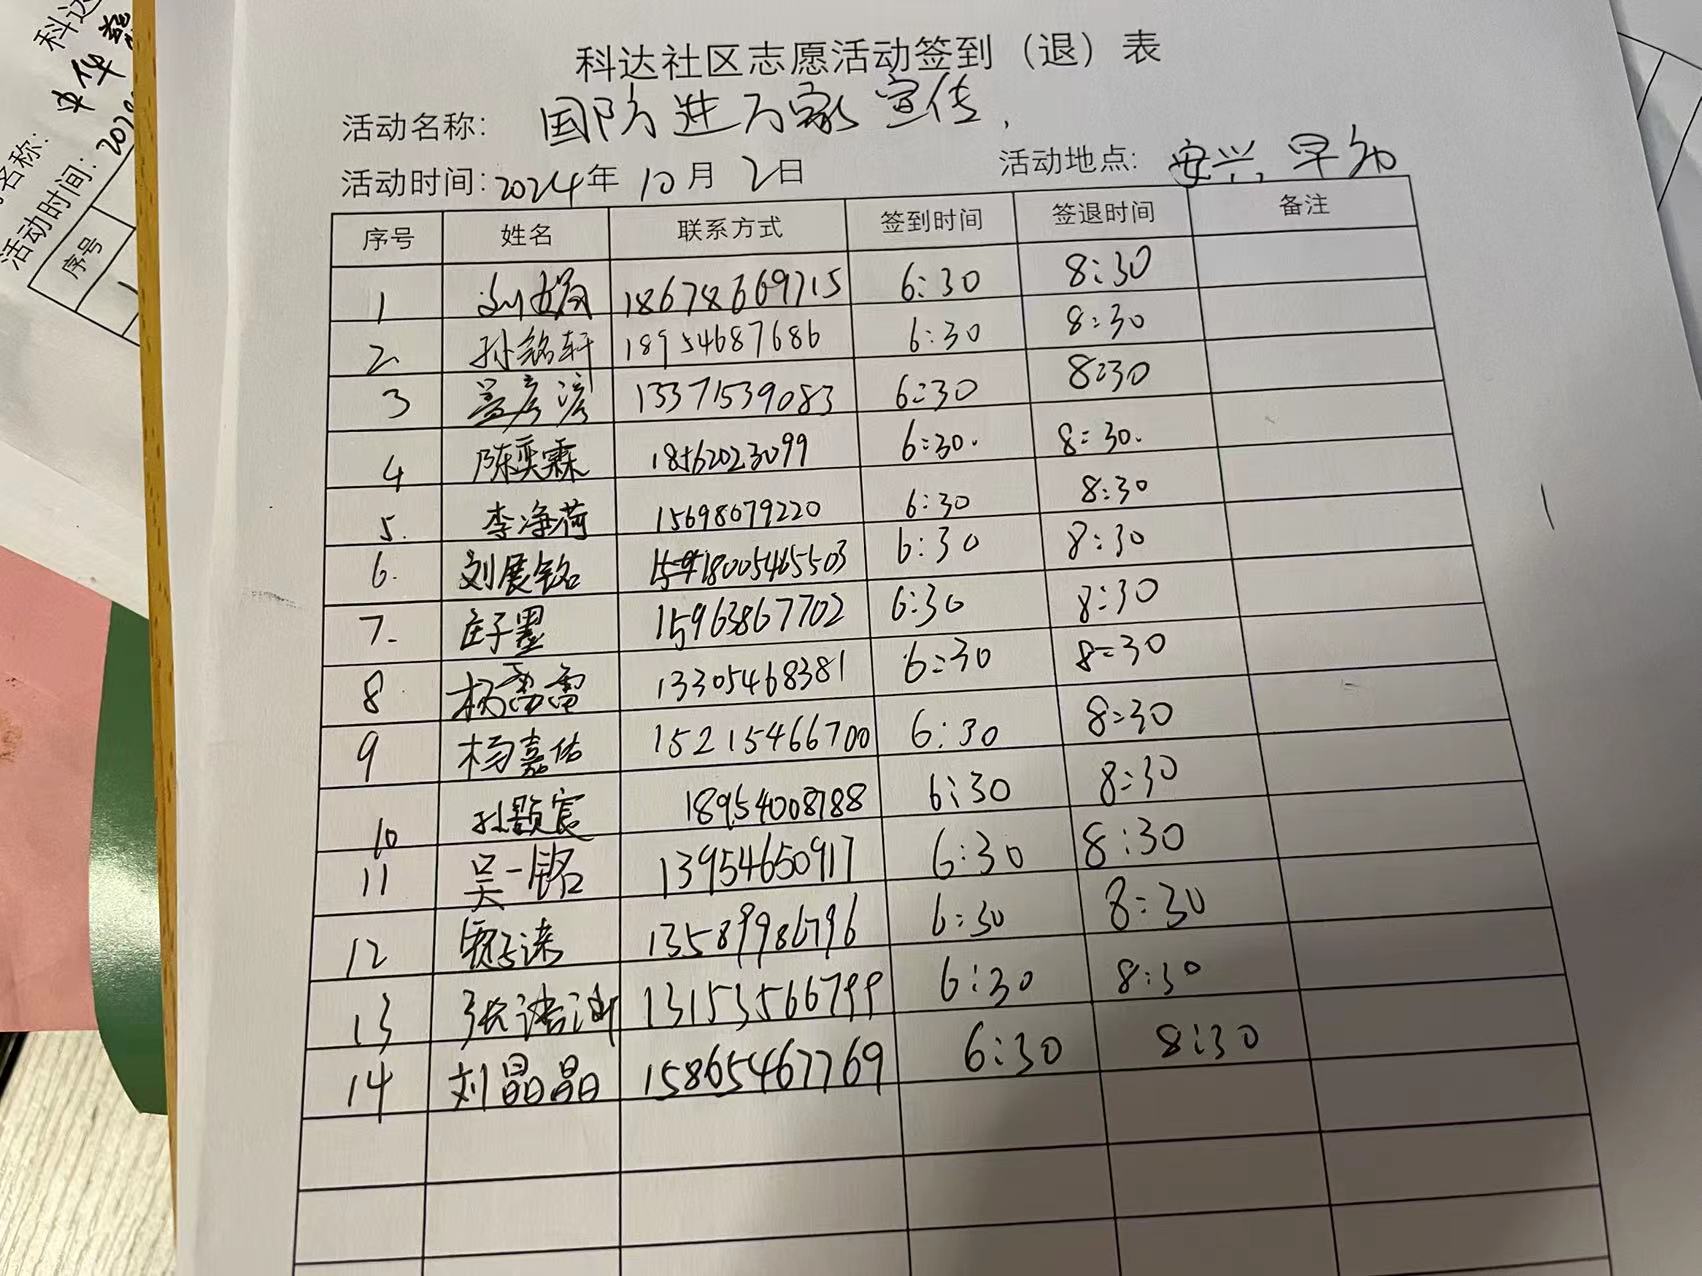 科达社区志愿活动签到（退）表
活动名称: 国防进万家宣传
活动时间: 2024年 10月 2日 活动地点: 安兴
序号 姓名 联系方式 签到时间 签退时间 备注
1 刘 18678669715 6:30 8:30
2 孙铭轩 18954687686 6:30 8:30
3 13371539083 6:30 8:30
4 陈奕霖 18562023099 6:30. 8:30.
5. 李净荷 15698079220 6:30 8:30
6. 刘展铭 18005465503 6:30 8:30
7. 庄子墨 15963867702 6:30 8:30
8 杨 13305468381 6:30 8:30
9 杨嘉佑 15215466700 6:30 8:30
10 孙颢宸 18954008788 6:30 8:30
11 吴一铭 13954650917 6:30 8:30
12 13589986796 6:30 8:30
13 张 13153566799 6:30 8:30
14 刘晶晶 15865467769 6:30 8:30
科达
中华
名称:
活动时间: 202
序号
1